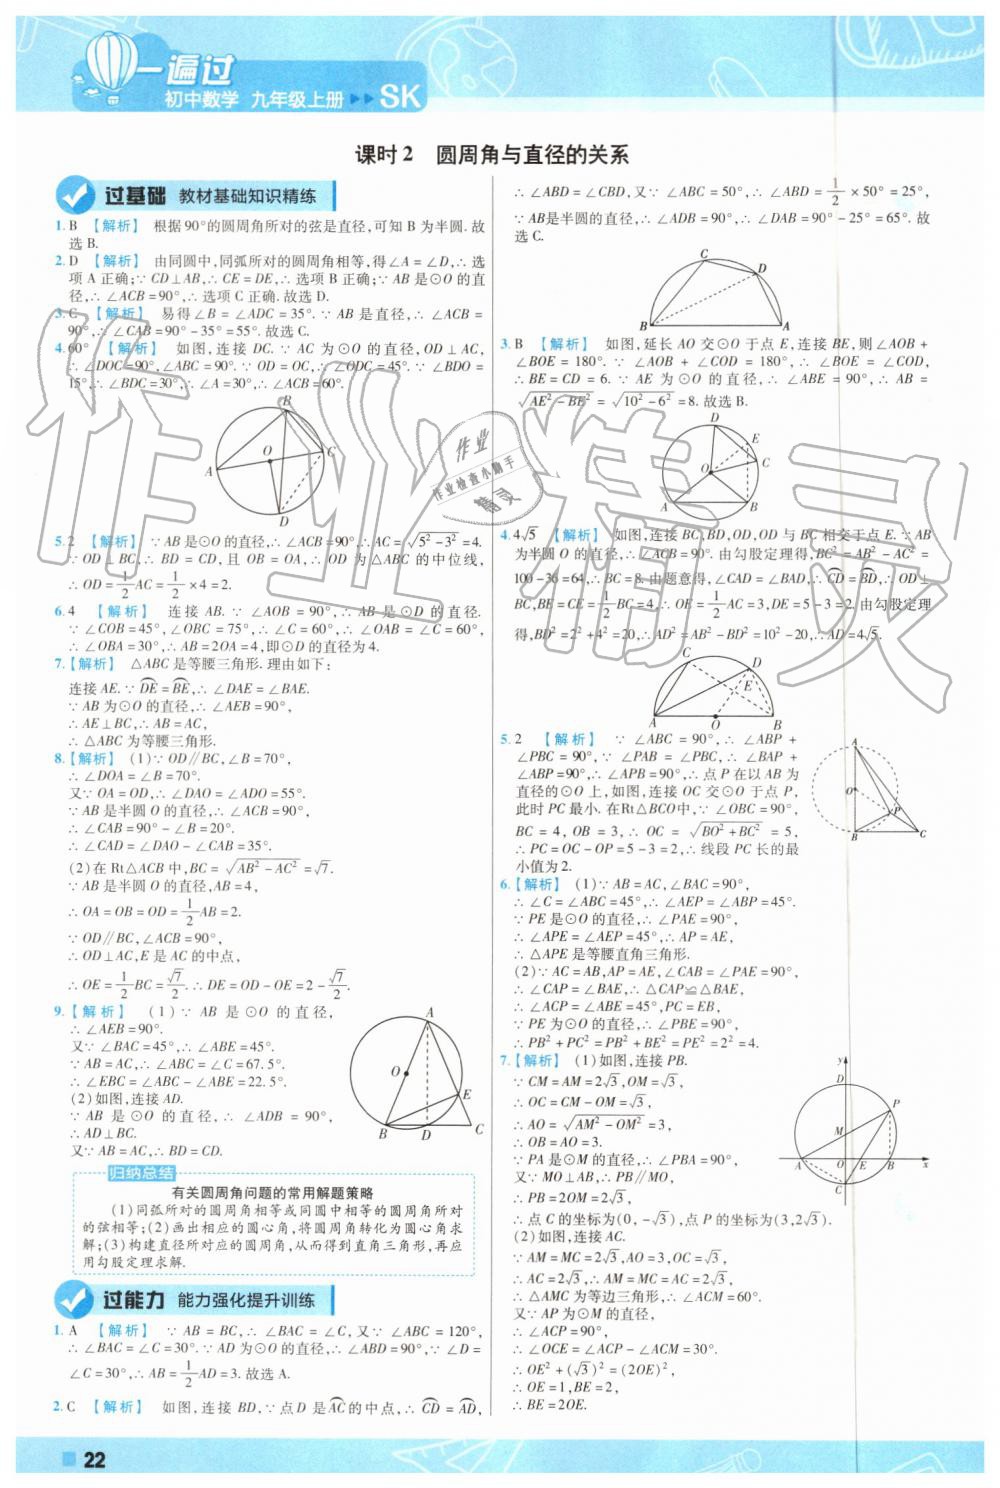 一遍过
初中数学 九年级上册 ▶▶ SK
课时2 圆周角与直径的关系
过基础 教材基础知识精练
1. B 【解析】 根据90°的圆周角所对的弦是直径,可知 B 为半圆. 故
选 B.
2. D 【解析】 由同圆中,同弧所对的圆周角相等,得∠A = ∠D,∴选
项 A 正确;∵ CD⊥AB,∴ CE = DE,∴ 选项 B 正确;∵ AB 是⊙O 的直
径,∴ ∠ACB = 90°,∴ 选项 C 正确. 故选 D.
3. C 【解析】 易得∠B = ∠ADC = 35°. ∵ AB 是直径,∴ ∠ACB =
90°,∴ ∠CAB = 90° - 35° = 55°. 故选 C.
4. 60° 【解析】 如图, 连接 DC. ∵ AC 为⊙O 的直径, OD ⊥ AC,
∴ ∠DOC = 90°, ∠ABC = 90°. ∵ OD = OC,∴ ∠ODC = 45°. ∵ ∠BDO =
15°,∴ ∠BDC = 30°,∴ ∠A = 30°,∴ ∠ACB = 60°.
B
O
C
A
D
5. 2 【解析】 ∵ AB 是⊙O 的直径,∴ ∠ACB = 90°,∴ AC = √(5² - 3²) = 4.
∵ OD⊥BC,∴ BD = CD, 且 OB = OA,∴ OD 为△ABC 的中位线,
∴ OD = 1/2 AC = 1/2 × 4 = 2.
6. 4 【解析】 连接 AB. ∵ ∠AOB = 90°,∴ AB 是⊙O 的直径.
∵ ∠COB = 45°, ∠OBC = 75°,∴ ∠C = 60°,∴ ∠OAB = ∠C = 60°,
∴ ∠OBA = 30°,∴ AB = 2OA = 4, 即⊙O 的直径为 4.
7. 【解析】 △ABC 是等腰三角形. 理由如下:
连接 AE. ∵ D͡E = B͡E,∴ ∠DAE = ∠BAE.
∵ AB 为⊙O 的直径,∴ ∠AEB = 90°,
∴ AE⊥BC,∴ AB = AC,
∴ △ABC 为等腰三角形.
8. 【解析】 (1)∵ OD∥BC, ∠B = 70°,
∴ ∠DOA = ∠B = 70°.
又∵ OA = OD,∴ ∠DAO = ∠ADO = 55°.
∵ AB 是半圆 O 的直径,∴ ∠ACB = 90°,
∴ ∠CAB = 90° - ∠B = 20°.
∴ ∠CAD = ∠DAO - ∠CAB = 35°.
(2)在 Rt△ACB 中, BC = √(AB² - AC²) = √7.
∵ AB 是半圆 O 的直径, AB = 4,
∴ OA = OB = OD = 1/2 AB = 2.
∵ OD∥BC, ∠ACB = 90°,
∴ OD⊥AC, E 是 AC 的中点,
∴ OE = 1/2 BC = √7/2. ∴ DE = OD - OE = 2 - √7/2.
9. 【解析】 (1)∵ AB 是⊙O 的直径,
∴ ∠AEB = 90°.
又∵ ∠BAC = 45°,∴ ∠ABE = 45°.
∵ AB = AC,∴ ∠ABC = ∠C = 67.5°.
∴ ∠EBC = ∠ABC - ∠ABE = 22.5°.
(2)如图,连接 AD.
∵ AB 是⊙O 的直径,∴ ∠ADB = 90°,
∴ AD⊥BC.
又∵ AB = AC,∴ BD = CD.
A
O
E
B
D
C
归纳总结
有关圆周角问题的常用解题策略
(1)同弧所对的圆周角相等或同圆中相等的圆周角所对
的弦相等;(2)画出相应的圆心角,将圆周角转化为圆心角求
解;(3)构建直径所对应的圆周角,从而得到直角三角形,再应
用勾股定理求解.
过能力 能力强化提升训练
1. A 【解析】 ∵ AB = BC,∴ ∠BAC = ∠C, 又∵ ∠ABC = 120°,
∴ ∠BAC = ∠C = 30°. ∵ AD 为⊙O 的直径,∴ ∠ABD = 90°,∵ ∠D =
∠C = 30°,∴ AB = 1/2 AD = 3. 故选 A.
2. C 【解析】 如图, 连接 BD,∵ 点 D 是 A͡C 的中点,∴ C͡D = A͡D,
∴ ∠ABD = ∠CBD, 又∵ ∠ABC = 50°,∴ ∠ABD = 1/2 × 50° = 25°,
∵ AB是半圆的直径,∴ ∠ADB = 90°,∴ ∠DAB = 90° - 25° = 65°. 故
选 C.
C
D
B
A
3. B 【解析】 如图, 延长 AO 交⊙O 于点 E, 连接 BE, 则∠AOB +
∠BOE = 180°. ∵ ∠AOB + ∠COD = 180°,∴ ∠BOE = ∠COD,
∴ BE = CD = 6. ∵ AE 为⊙O 的直径,∴ ∠ABE = 90°,∴ AB =
√(AE² - BE²) = √(10² - 6²) = 8. 故选 B.
D
E
C
O
A
B
4. 4√5 【解析】 如图,连接 BC, BD, OD, OD 与 BC 相交于点 E. ∵ AB
为半圆 O 的直径,∴ ∠ACB = 90°. 由勾股定理得, BC² = AB² - AC² =
100 - 36 = 64,∴ BC = 8. 由题意得, ∠CAD = ∠BAD,∴ C͡D = B͡D,∴ OD⊥
BC, BE = CE = 1/2 BC = 4,∴ OE = 1/2 AC = 3, DE = 5 - 3 = 2. 由勾股定理
得, BD² = 2² + 4² = 20,∴ AD² = AB² - BD² = 10² - 20,∴ AD = 4√5.
C
D
E
A
O
B
5. 2 【解析】 ∵ ∠ABC = 90°,∴ ∠ABP +
∠PBC = 90°,∵ ∠PAB = ∠PBC,∴ ∠BAP +
∠ABP = 90°,∴ ∠APB = 90°,∴ 点 P 在以 AB 为
直径的⊙O 上, 如图, 连接 OC 交⊙O 于点 P,
此时 PC 最小. 在 Rt△BCO 中,∵ ∠OBC = 90°,
BC = 4, OB = 3,∴ OC = √(BO² + BC²) = 5,
∴ PC = OC - OP = 5 - 3 = 2,∴ 线段 PC 长的最
小值为 2.
A
O
P
B
C
6. 【解析】 (1)∵ AB = AC, ∠BAC = 90°,
∴ ∠C = ∠ABC = 45°,∴ ∠AEP = ∠ABP = 45°.
∵ PE 是⊙O 的直径,∴ ∠PAE = 90°,
∴ ∠APE = ∠AEP = 45°,∴ AP = AE,
∴ △APE 是等腰直角三角形.
(2)∵ AC = AB, AP = AE, ∠CAB = ∠PAE = 90°,
∴ ∠CAP = ∠BAE,∴ △CAP≌△BAE,
∴ ∠ACP = ∠ABE = 45°, PC = EB,
∵ PE 为⊙O 的直径,∴ ∠PBE = 90°,
∴ PB² + PC² = PB² + BE² = PE² = 2² = 4.
7. 【解析】 (1)如图,连接 PB.
∵ CM = AM = 2√3, OM = √3,
∴ OC = CM - OM = √3,
∴ AO = √(AM² - OM²) = 3,
∴ OB = AO = 3.
∵ PA 是⊙M 的直径,∴ ∠PBA = 90°,
又∵ MO⊥AB,∴ PB∥MO,
∴ PB = 2OM = 2√3,
∴ 点 C 的坐标为(0, -√3), 点 P 的坐标为(3, 2√3).
(2)如图,连接 AC.
∵ AM = MC = 2√3, AO = 3, OC = √3,
∴ AC = 2√3,∴ AM = MC = AC = 2√3,
∴ △AMC 为等边三角形,∴ ∠ACM = 60°.
又∵ AP 为⊙M 的直径,
∴ ∠ACP = 90°,
∴ ∠OCE = ∠ACP - ∠ACM = 30°.
∴ OE² + (√3)² = (2OE)².
∴ OE = 1, BE = 2,
∴ BE = 2OE.
y
D
P
M
A
O
E
B
x
C
作业精灵
作业
作业检查小助手
精灵
22